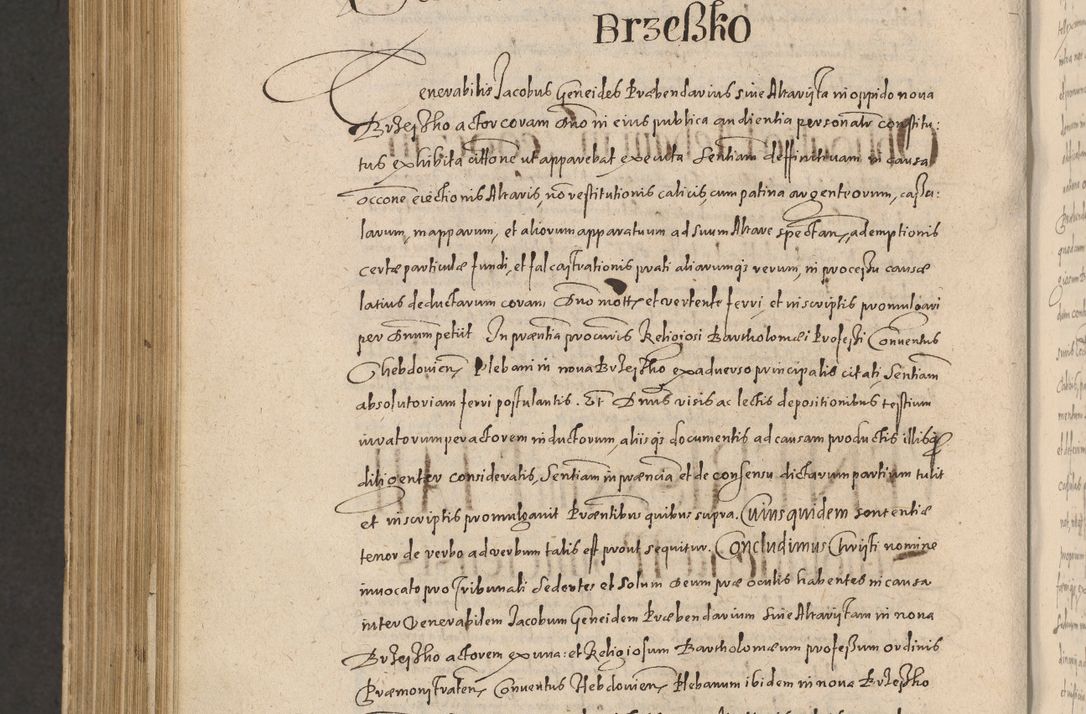 Brzeßko
Venerabilis Jacobus Geneides Præbendarius siue Altarijsta in oppido noua
Brzeisko actor coram Dno in eius publica audientia personalr constitu:
tus exhibita cittone ut apparebat executa Sentiam deffinituam in causa
occone eiectionis Altaris, nō restitutionis calicis, cum patina argenteorum, casu:
larum, mapparum, et aliorum apparatuum ad suum Altare spectan, ademptionis
certæ particulæ fundi, et falcastrationis prati aliarumqz rerum, in processu causæ
latius deductarum coram Dno motæ et vertente ferri, et in scriptis promulgari
per Dnum petiit In præntia procuris Religiosi Bartholomæi Professi Conuentus
Chebdouien, Plebani in noua Brzeisko ex aduerso principalis citati, Sentiam
absolutoriam ferri postulantis. Et Dnus visis ac lectis depositionibus testium
iuratorum per actorem inductorum, aliisqz documentis ad causam productis illisqz
diligenter consideratis, Sentiam in præncia et de consensu dictarum partium tulit
et in scriptis promulgauit Præntibus quibus supra. Cuiusquidem sententiæ
tenor de verbo ad verbum talis est prout sequitur. Concludimus Christi nomine
inuocato pro Tribunali Sedentes et solum Deum præ oculis habentes in causa
inter Venerabilem Jacobum Geneidem Præbendarium Siue Altarijstam in noua
Brzeisko actorem ex una: et Religiosum Bartholomæum professum ordinis
Præmonstraten, Conuentus Hebdouien, Plebanum ibidem in noua Brzeisko